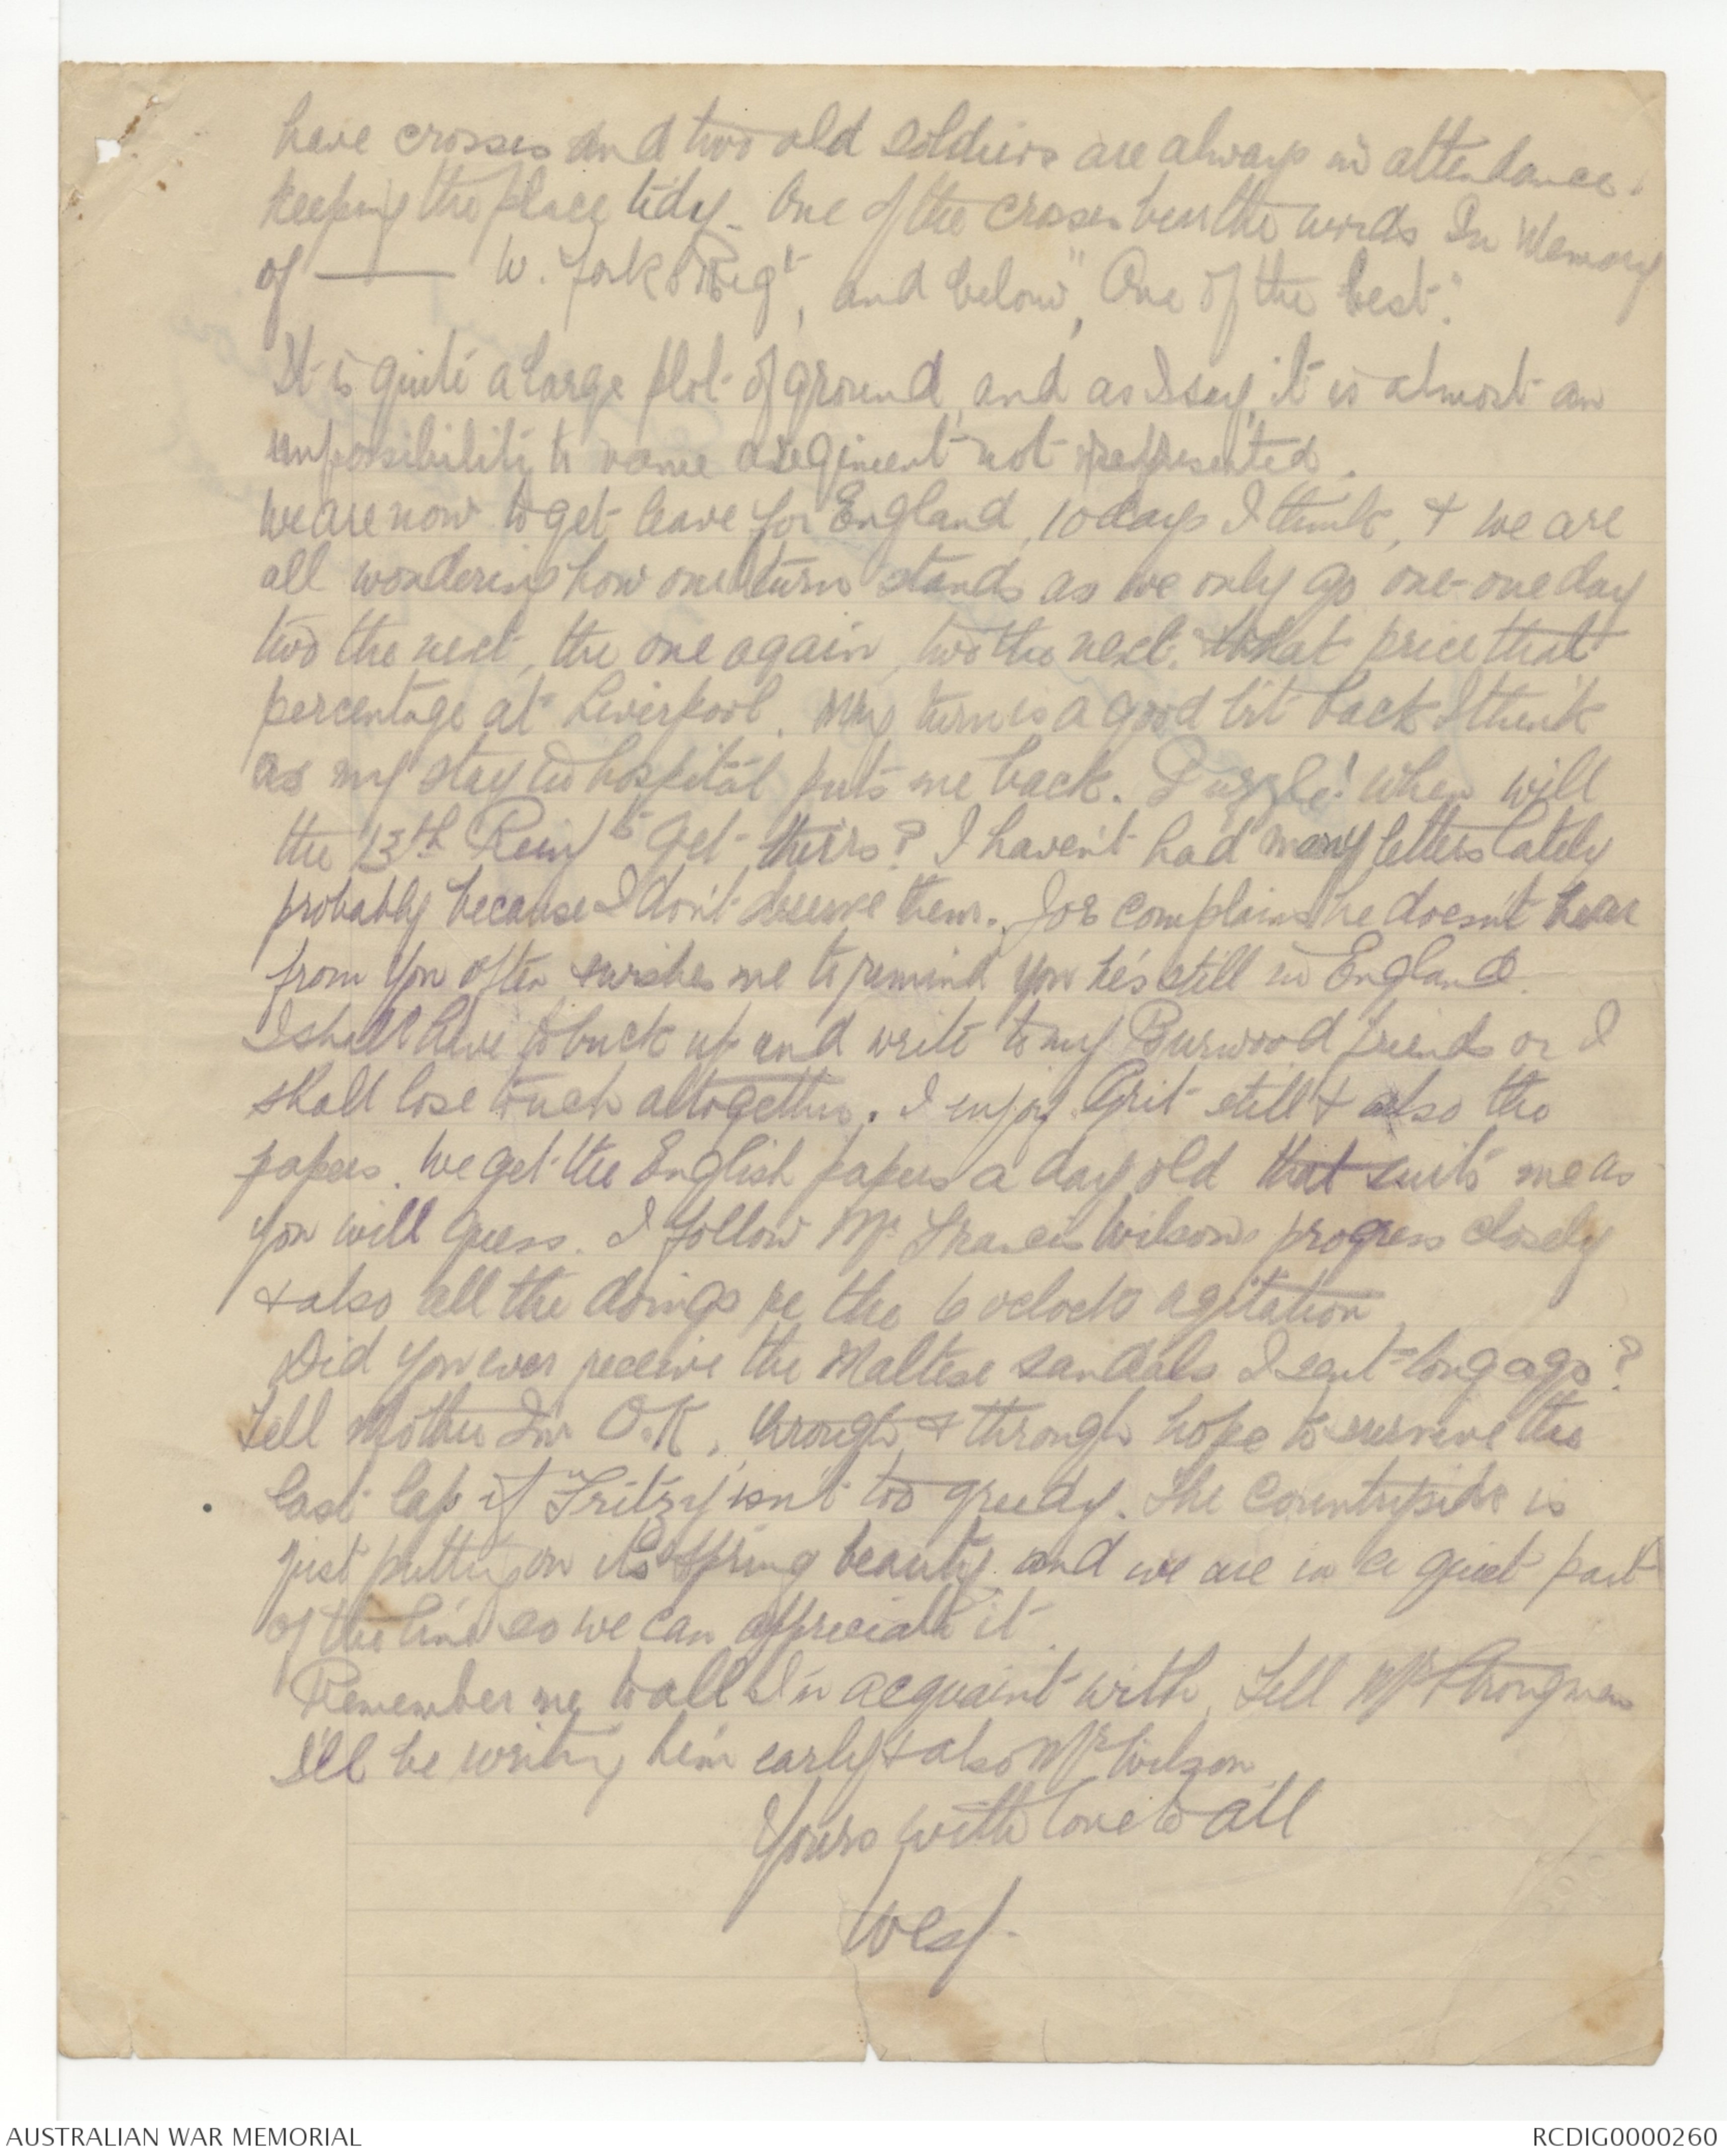 have crosses and two old soldiers are always in attendance
keeping the place tidy. One of the crosses bear the words In Memory
of ——— W. Yorks Regt, and below "One of the best".
It is quite a large plot of ground, and as I say, it is almost an
impossibility to name a regiment not represented.
We are now to get leave for England, 10 days I think, & we are
all wondering how our turn stands as we only go one-one day
two the next, the one again, two the next. What price that
percentage at Liverpool. My turn is a good bit back I think
as my stay in hospital puts me back. Puzzle! When will
the 13th Reinfts get theirs? I haven't had many letters lately
probably because I don't deserve them. Joe complains he doesn't hear
from you often & wishes me to remind you he's still in England.
I shall have to buck up and write to my Burwood friends or I
shall lose touch altogether. I enjoy Grit still & also the
papers. We get the English papers a day old that suits me as
you will guess. I follow Mr Francis Wilsons progress closely
& also all the doings re the 6 oclock agitation
Did you ever receive the Maltese sandals I sent long ago?
Tell Mother I'm O.K, through & through hope to survive the
last lap if Fritzy isn't too greedy. The Countryside is
just putting on its spring beauty and we are in a quiet part
of the line so we can appreciate it.
Remember me to all I'm acquaint with. Tell Mr Strongman
I'll be writing him early & also Mr Wilson
Yours with love to all
Wes.
AUSTRALIAN WAR MEMORIAL
RCDIG0000260